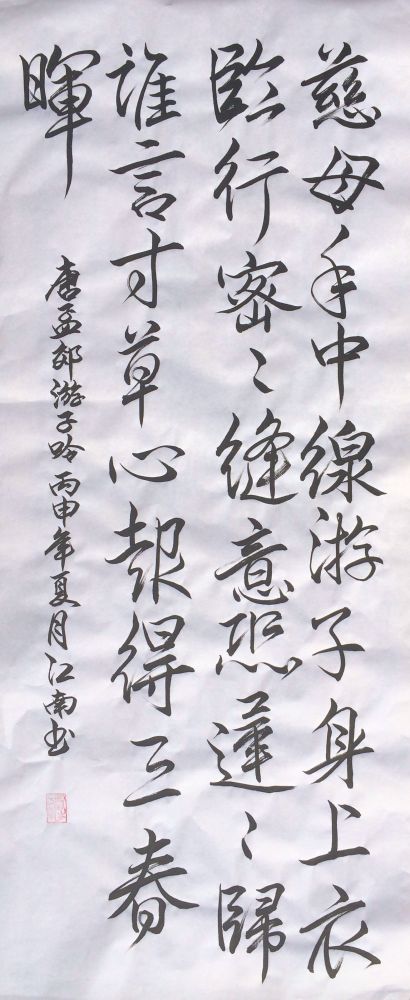 慈母手中線游子身上衣
臨行密〻縫意恐遲〻歸
誰言寸草心報得三春
暉
唐孟郊游子吟丙申年夏月江南书